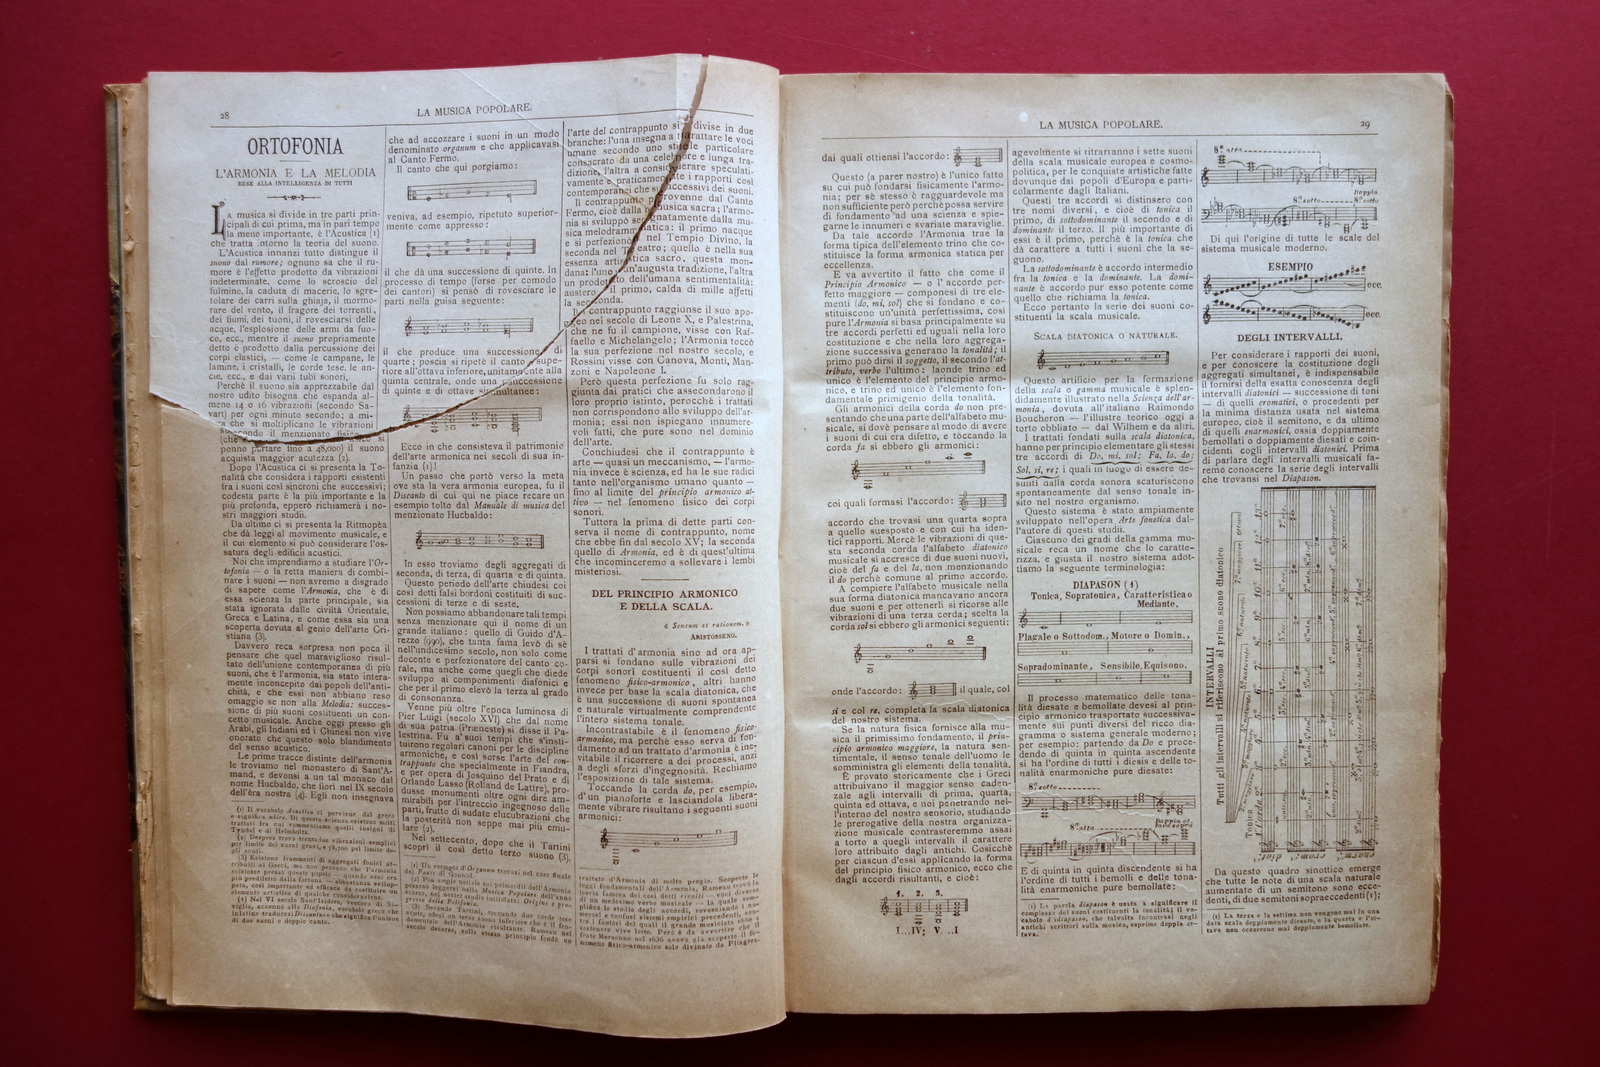 28
LA MUSICA POPOLARE.
ORTOFONIA
L'ARMONIA E LA MELODIA
RESE ALLA INTELLIGENZA DI TUTTI
La musica si divide in tre parti prin-
cipali di cui prima, ma in pari tempo
la meno importante, è l'Acustica (1)
che tratta intorno la teoria del suono.
L'Acustica innanzi tutto distingue il
suono dal rumore; ognuno sa che il ru-
more è l'effetto prodotto da vibrazioni
indeterminate, come lo scroscio del
fulmine, la caduta di macerie, lo sgre-
tolare dei carri sulla ghiaja, il mormo-
rare del vento, il fragore dei torrenti,
dei fiumi, dei tuoni, il rovesciarsi delle
acque, l'esplosione delle armi da fuo-
co, ecc, mentre il suono propriamente
detto è prodotto dalla percussione dei
corpi elastici, — come le campane, le
lamine, i cristalli, le corde tese, le an-
cie, ecc., e dai varii tubi sonori.
Perchè il suono sia apprezzabile dal
nostro udito bisogna che espanda al-
meno 14 o 16 vibrazioni (secondo Sa-
vart) per ogni minuto secondo; a mi-
che si moltiplicano le vibrazioni
ponno portare fino a 48,000) il suono
acquista maggior acutezza (2).
Dopo l'Acustica ci si presenta la To-
nalità che considera i rapporti esistenti
fra i suoni così sincroni che successivi;
codesta parte è la più importante e la
più profonda, epperò richiamerà i no-
stri maggiori studii.
Da ultimo ci si presenta la Ritmopèa
che dà leggi al movimento musicale, e
il cui elemento si può considerare l'os-
satura degli edificii acustici.
Noi che imprendiamo a studiare l'Or-
tofonia — o la retta maniera di combi-
nare i suoni — non avremo a disgrado
di sapere come l'Armonia, che è di
essa scienza la parte principale, sia
stata ignorata dalle civiltà Orientale,
Greca e Latina, e come essa sia una
scoperta dovuta al genio dell'arte Cri-
stiana (3).
Davvero reca sorpresa non poca il
pensare che quel maraviglioso risul-
tato dell'unione contemporanea di più
suoni, che è l'armonia, sia stato intera-
mente inconcepito dai popoli dell'anti-
chità, e che essi non abbiano reso
omaggio se non alla Melodia: succes-
sione di più suoni costituenti un con-
cetto musicale. Anche oggi presso gli
Arabi, gli Indiani ed i Chinesi non vive
onorato che questo solo blandimento
del senso acustico.
Le prime tracce distinte dell'armonia
le troviamo nel monastero di Sant'A-
mand, e devonsi a un tal monaco dal
nome Hucbaldo, che fiorì nel IX secolo
dell'èra nostra (4). Egli non insegnava
che ad accozzare i suoni in un modo
denominato organum e che applicavasi
al Canto Fermo.
Il canto che qui porgiamo:
veniva, ad esempio, ripetuto superior-
mente come appresso:
il che dà una successione di quinte. In
processo di tempo (forse per comodo
dei cantori) si pensò di rovesciare le
parti nella guisa seguente:
il che produce una successione di
quarte; poscia si ripetè il canto supe-
riore all'ottava inferiore, unitamente alla
quinta centrale, onde una successione
di quinte e di ottave simultanee:
Ecco in che consisteva il patrimonio
dell'arte armonica nei secoli di sua in-
fanzia (1)!
Un passo che portò verso la meta
ove sta la vera armonia europea, fu il
Discanto di cui qui ne piace recare un
esempio tolto dal Manuale di musica del
menzionato Hucbaldo:
In esso troviamo degli aggregati di
seconda, di terza, di quarta e di quinta.
Questo periodo dell'arte chiudesi coi
così detti falsi bordoni costituiti di suc-
cessioni di terze e di seste.
Non possiamo abbandonare tali tempi
senza menzionare qui il nome di un
grande italiano: quello di Guido d'A-
rezzo (990), che tanta fama levò di sè
nell'undicesimo secolo, non solo come
docente e perfezionatore del canto co-
rale, ma anche come quegli che diede
sviluppo ai componimenti diafonici e
che per il primo elevò la terza al grado
di consonanza.
Venne più oltre l'epoca luminosa di
Pier Luigi (secolo XVI) che dal nome
di sua patria (Præneste) si disse il Pa-
lestrina. Fu a'suoi tempi che s'insti-
tuirono regolari canoni per le discipline
armoniche, e così sorse l'arte del con-
trappunto che specialmente in Fiandra,
e per opera di Josquino del Prato e di
Orlando Lasso (Rolland de Lattre), pro-
dusse monumenti oltre ogni dire am-
mirabili per l'intreccio ingegnoso delle
parti, frutto di sudate elucubrazioni che
la posterità non seppe mai più emu-
lare (2).
Nel settecento, dopo che il Tartini
scoprì il così detto terzo suono (3),
l'arte del contrappunto si divise in due
branche: l'una insegna a trattare le voci
umane secondo uno stile particolare
consacrato da una celebre e lunga tra-
dizione, l'altra a considerare speculati-
vamente e praticamente i rapporti così
contemporanei che successivi dei suoni.
Il contrappunto provenne dal Canto
Fermo, cioè dalla musica sacra; l'armo-
nia si sviluppò segnatamente dalla mu-
sica melodrammatica: il primo nacque
e si perfezionò nel Tempio Divino, la
seconda nel Teatro; quello è nella sua
essenza artistica sacro, questa mon-
dana: l'uno un'augusta tradizione, l'altra
un prodotto dell'umana sentimentalità:
austero il primo, calda di mille affetti
la seconda.
Il contrappunto raggiunse il suo apo-
geo nel secolo di Leone X, e Palestrina,
che ne fu il campione, visse con Raf-
faello e Michelangelo; l'Armonia toccò
la sua perfezione nel nostro secolo, e
Rossini visse con Canova, Monti, Man-
zoni e Napoleone I.
Però questa perfezione fu solo rag-
giunta dai pratici che assecondarono il
loro proprio istinto, perocchè i trattati
non corrispondono allo sviluppo dell'ar-
monia; essi non ispiegano innumere-
voli fatti, che pure sono nel dominio
dell'arte.
Conchiudesi che il contrappunto è
arte — quasi un meccanismo, — l'armo-
nia invece è scienza, ed ha le sue radici
tanto nell'organismo umano quanto —
fino al limite del principio armonico at-
tico — nel fenomeno fisico dei corpi
sonori.
Tuttora la prima di dette parti con-
serva il nome di contrappunto, nome
che ebbe fin dal secolo XV; la seconda
quello di Armonia, ed è di quest'ultima
che incominceremo a sollevare i lembi
misteriosi.
DEL PRINCIPIO ARMONICO
E DELLA SCALA.
« Sensum et rationem. »
ARISTOSSENO.
I trattati d'armonia sino ad ora ap-
parsi si fondano sulle vibrazioni dei
corpi sonori costituenti il così detto
fenomeno fisico-armonico, altri hanno
invece per base la scala diatonica, che
è una successione di suoni spontanea
e naturale virtualmente comprendente
l'intero sistema tonale.
Incontrastabile è il fenomeno fisico-
armonico, ma perchè esso serva di fon-
damento ad un trattato d'armonia è ine-
vitabile il ricorrere a dei processi, anzi
a degli sforzi d'ingegnosità. Rechiamo
l'esposizione di tale sistema.
Toccando la corda do, per esempio,
d'un pianoforte e lasciandola libera-
mente vibrare risultano i seguenti suoni
armonici:
LA MUSICA POPOLARE.
29
dai quali ottiensi l'accordo:
Questo (a parer nostro) è l'unico fatto
su cui può fondarsi fisicamente l'armo-
nia; per sè stesso è ragguardevole ma
non sufficiente però perchè possa servire
di fondamento ad una scienza e spie-
garne le innumeri e svariate maraviglie.
Da tale accordo l'Armonia trae la
forma tipica dell'elemento trino che co-
stituisce la forma armonica statica per
eccellenza.
E va avvertito il fatto che come il
Principio Armonico — o l'accordo per-
fetto maggiore — componesi di tre ele-
menti (do, mi, sol) che si fondano e co-
stituiscono un'unità perfettissima, così
pure l'Armonia si basa principalmente su
tre accordi perfetti ed uguali nella loro
costituzione e che nella loro aggrega-
zione successiva generano la tonalità; il
primo può dirsi il soggetto, il secondo l'at-
tributo, verbo l'ultimo: laonde trino ed
unico è l'elemento del principio armo-
nico, e trino ed unico è l'elemento fon-
damentale primigenio della tonalità.
Gli armonici della corda do non pre-
sentando che una parte dell'alfabeto mu-
sicale, si dovè pensare al modo di avere
i suoni di cui era difetto, e toccando la
corda fa si ebbero gli armonici:
coi quali formasi l'accordo:
accordo che trovasi una quarta sopra
a quello suesposto e con cui ha iden-
tici rapporti. Mercè le vibrazioni di que-
sta seconda corda l'alfabeto diatonico
musicale si accresce di due suoni nuovi,
cioè del fa e del la, non menzionando
il do perchè comune al primo accordo.
A compiere l'alfabeto musicale nella
sua forma diatonica mancavano ancora
due suoni e per ottenerli si ricorse alle
vibrazioni di una terza corda; scelta la
corda sol si ebbero gli armonici seguenti:
onde l'accordo: il quale, col
si e col re, completa la scala diatonica
del nostro sistema.
Se la natura fisica fornisce alla mu-
sica il primissimo fondamento, il prin-
cipio armonico maggiore, la natura sen-
timentale, il senso tonale dell'uomo le
somministra gli elementi della tonalità.
È provato storicamente che i Greci
attribuivano il maggior senso caden-
zale agli intervalli di prima, quarta,
quinta ed ottava, e noi penetrando nel-
l'interno del nostro sensorio, studiando
le prerogative della nostra organizza-
zione musicale contrasteremmo assai
a torto a quegli intervalli il carattere
loro attribuito dagli antichi. Cosicchè
per ciascun d'essi applicando la forma
del principio fisico armonico, ecco che
dagli accordi risultanti, e cioè:
1. 2. 3.
I...IV; V...I
agevolmente si ritrarranno i sette suoni
della scala musicale europea e cosmo-
politica, per le conquiste artistiche fatte
dovunque dai popoli d'Europa e parti-
colarmente dagli Italiani.
Questi tre accordi si distinsero con
tre nomi diversi, e cioè di tonica il
primo, di sottodominante il secondo e di
dominante il terzo. Il più importante di
essi è il primo, perchè è la tonica che
dà carattere a tutti i suoni che la se-
guono.
La sottodominante è accordo intermedio
fra la tonica e la dominante. La domi-
nante è accordo pur esso potente come
quello che richiama la tonica.
Ecco pertanto la serie dei suoni co-
stituenti la scala musicale.
SCALA DIATONICA O NATURALE.
Questo artificio per la formazione
della scala o gamma musicale è splen-
didamente illustrato nella Scienza dell'ar-
monia, dovuta all'italiano Raimondo
Boucheron — l'illustre teorico oggi a
torto obbliato — dal Wilhem e da altri.
I trattati fondati sulla scala diatonica,
hanno per principio elementare gli stessi
tre accordi di Do, mi, sol; Fa, la, do;
Sol, si, re; i quali in luogo di essere de-
sunti dalla corda sonora scaturiscono
spontaneamente dal senso tonale in-
sito nel nostro organismo.
Questo sistema è stato ampiamente
sviluppato nell'opera Arte fonetica dal-
l'autore di questi studii.
Ciascuno dei gradi della gamma mu-
sicale reca un nome che lo caratte-
rizza, e giusta il nostro sistema adot-
tiamo la seguente terminologia:
DIAPASON (1)
Tonica, Sopratonica, Caratteristica o
Mediante,
Plagale o Sottodom., Motore o Domin.,
Sopradominante, Sensibile, Equisono.
Il processo matematico delle tona-
lità diesate e bemollate devesi al prin-
cipio armonico trasportato successiva-
mente sui punti diversi del ricco dia-
gramma o sistema generale moderno;
per esempio: partendo da Do e proce-
dendo di quinta in quinta ascendente
si ha l'ordine di tutti i diesis e delle to-
nalità enarmoniche pure diesate:
8ª sotto
8ª sotto
E di quinta in quinta discendente si ha
l'ordine di tutti i bemolli e delle tona-
lità enarmoniche pure bemollate:
(1) La parola diapason è usata a significare il
complesso dei suoni costituenti la tonalità; il vo-
cabolo diapason, che talvolta incontrasi negli
antichi scrittori sulla musica, esprime doppia ot-
tava.
8ª alto
Doppia
8ª sotto
8ª sotto
Di qui l'origine di tutte le scale del
sistema musicale moderno.
ESEMPIO
ecc.
ecc.
DEGLI INTERVALLI.
Per considerare i rapporti dei suoni,
e per conoscere la costituzione degli
aggregati simultanei, è indispensabile
il fornirsi della esatta conoscenza degli
intervalli diatonici — successione di toni
— di quelli cromatici, o procedenti per
la minima distanza usata nel sistema
europeo, cioè il semitono, e da ultimo
di quelli enarmonici, ossia doppiamente
bemollati o doppiamente diesati e coin-
cidenti cogli intervalli diatonici. Prima
di parlare degli intervalli musicali fa-
remo conoscere la serie degli intervalli
che trovansi nel Diapason.
INTERVALLI
Tutti gli intervalli si riferiscono al primo suono diatonico
Da questo quadro sinottico emerge
che tutte le note di una scala naturale
aumentate di un semitono sono ecce-
denti, di due semitoni sopraeccedenti (1);
(1) La terza e la settima non vengono mai in una
data scala doppiamente diesate, e la quarta e l'ot-
tava non occorrono mai doppiamente bemollate.